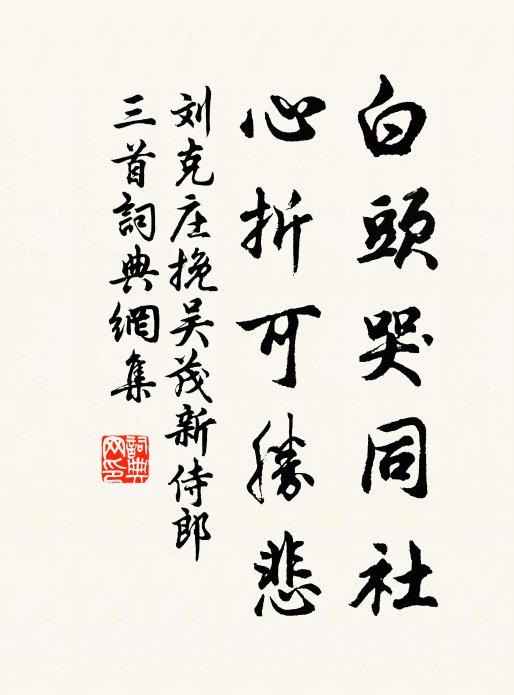 白頭哭同社
心折可勝悲
刘克庄挽吴茂新侍郎
三首詞典網集
詞典
网印